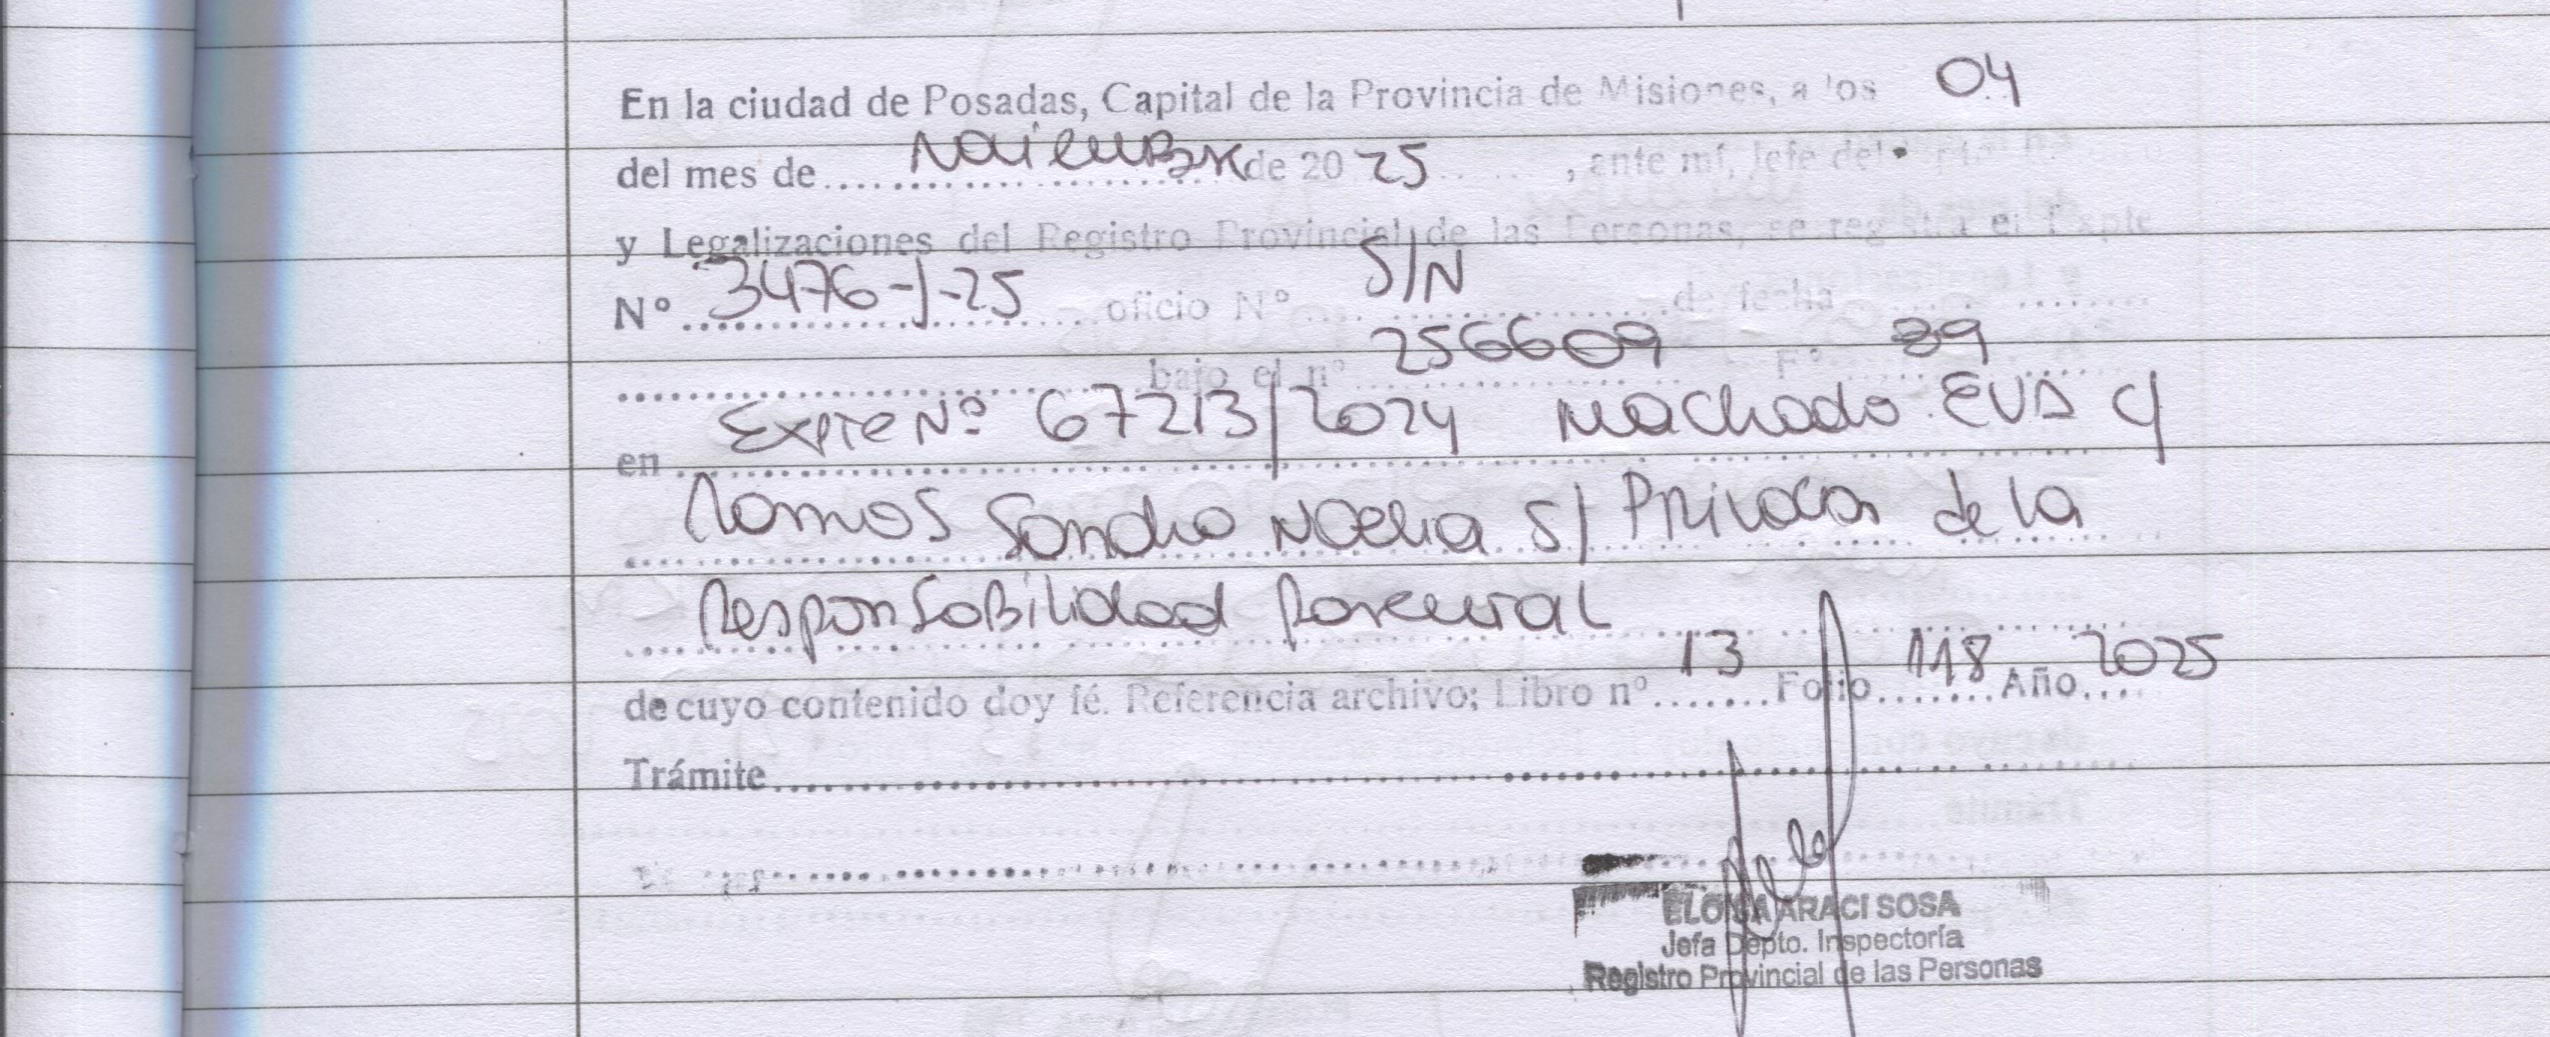 En la ciudad de Posadas, Capital de la Provincia de Misiones, a los 04
del mes de Noviembre de 2025, ante mí, Jefe del
y Legalizaciones del Registro Provincial de las Personas, se registra el Expte
N° 3476-J-25 oficio N° S/N de fecha
bajo el n° 256609 F° 39
en Expte Nº 67213/2024 Machado EVA c/
Ramos Sandra Noelia s/ Privacion de la
Responsabilidad Parental
de cuyo contenido doy fé. Referencia archivo; Libro n° 13 Folio 118 Año 2025
Trámite
ELOISA ARACI SOSA
Jefa Depto. Inspectoría
Registro Provincial de las Personas